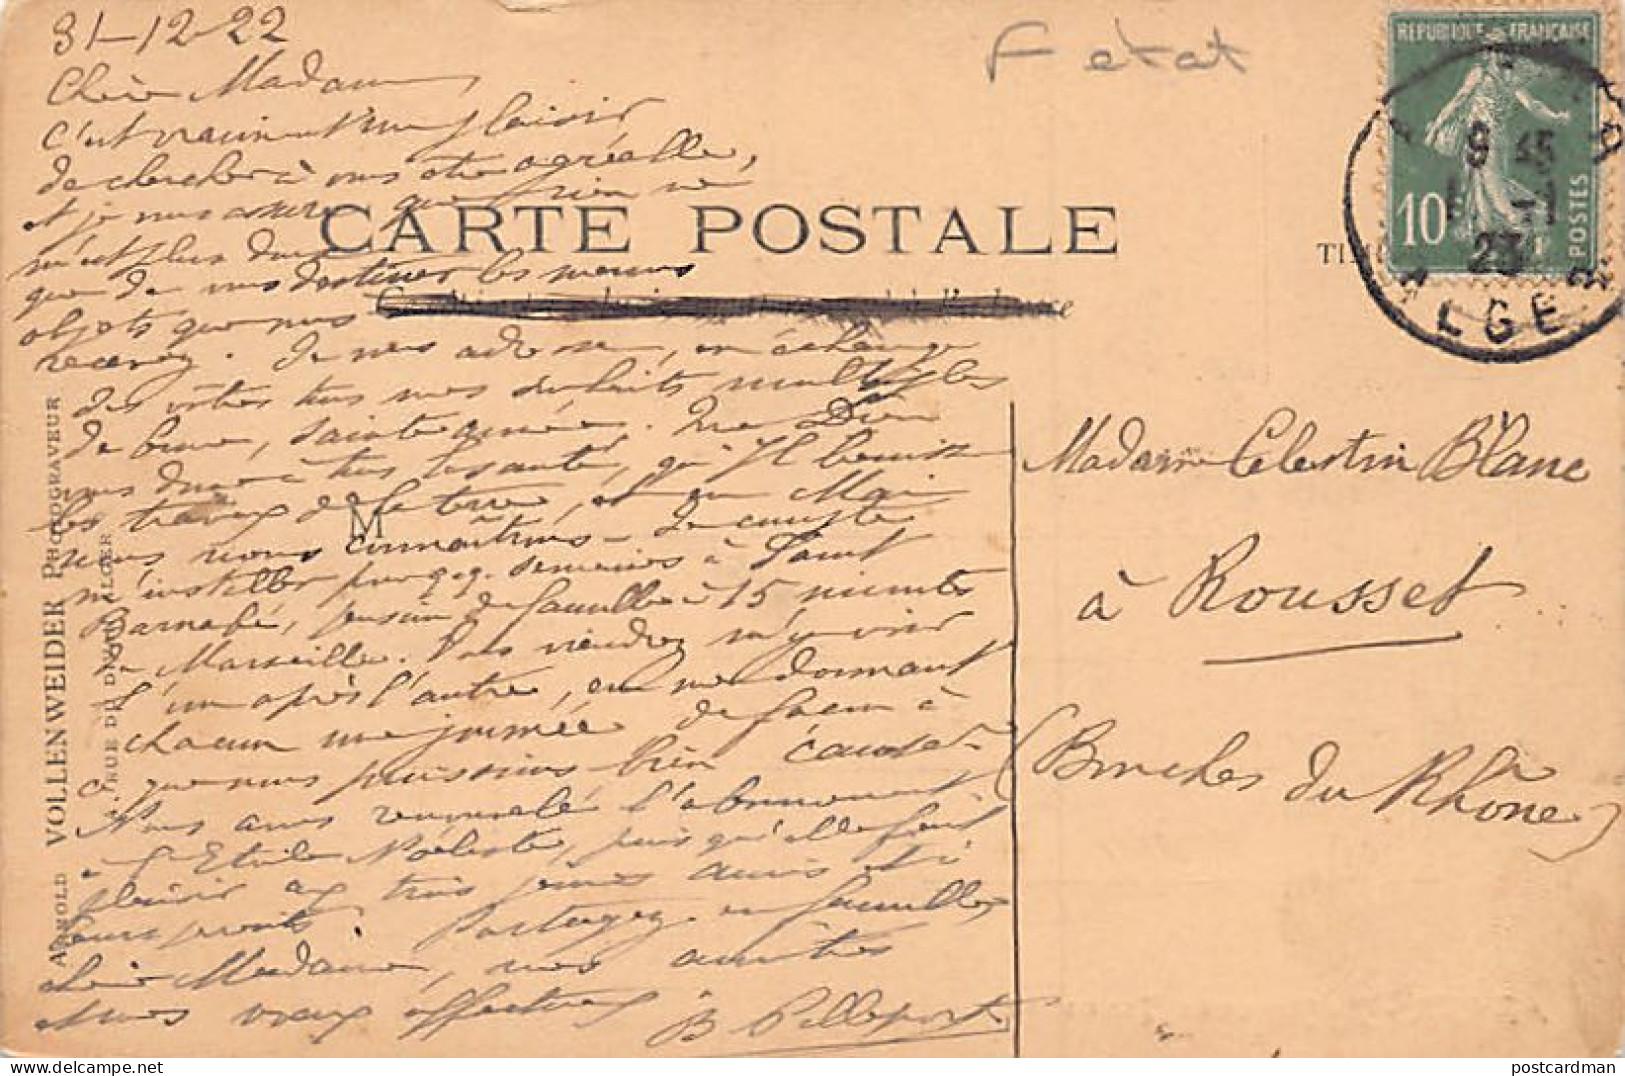 31-12-22
Chère Madame,
c'est vraiment un plaisir
de chercher à vous être agréable,
et je vous assure que rien ne
m'est plus doux
que de vous destiner les menus
objets que vous
recevez. Je vous adresse, en échange
des vôtres tous mes souhaits multiples
de bonne, sainte année. Que Dieu
vous donne à tous la santé, qu'Il bénisse
les travaux de la terre, et en Mai
nous nous connaîtrons - Je compte
m'installer pour qq. semaines à Saint
Barnabé, pension de famille à 15 minutes
de Marseille. Vous viendrez m'y voir
l'un après l'autre, en me donnant
chacun une journée de façon à
ce que nous puissions bien causer -
Nous avons renouvelé l'abonnement
à l'Etoile Noëliste, puisqu'elle fait
plaisir aux trois jeunes amis et à
leurs parents. Partagez en famille,
chère Madame, nos amitiés
et nos vœux affectueux
B Pelleport
F état
CARTE POSTALE
REPUBLIQUE FRANÇAISE
10c
POSTES
9 45
1 -1
23
ALGER
M
Madame Célestin Blanc
à Rousset
(Bouches du Rhône)
ARNOLD VOLLENWEIDER PHOTOGRAVEUR
RUE DU DIVAN ALGER
postcardman